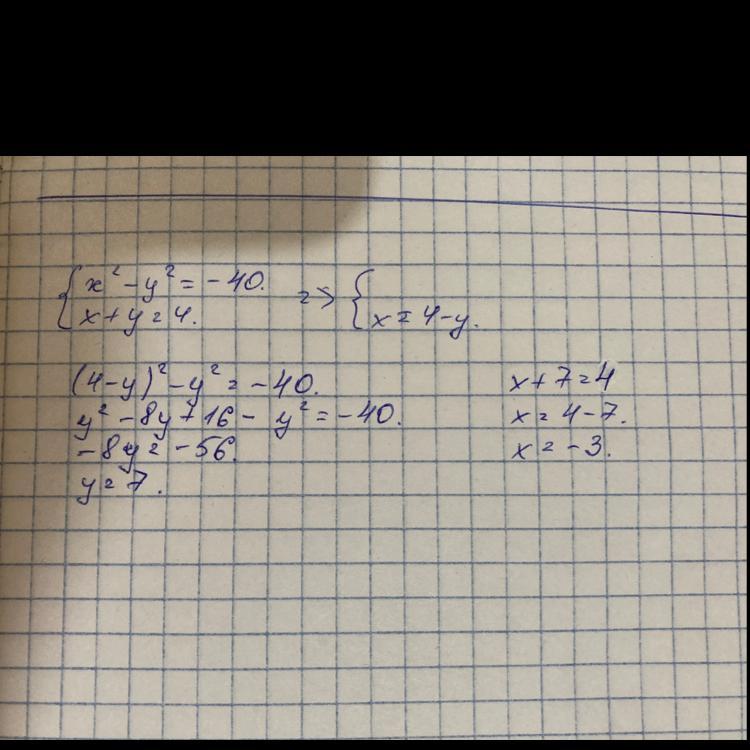 { x² - y² = -40. => {
x + y = 4. x = 4 - y.
(4 - y)² - y² = -40.
y² - 8y + 16 - y² = -40.
-8y = -56.
y = 7.
x + 7 = 4
x = 4 - 7.
x = -3.